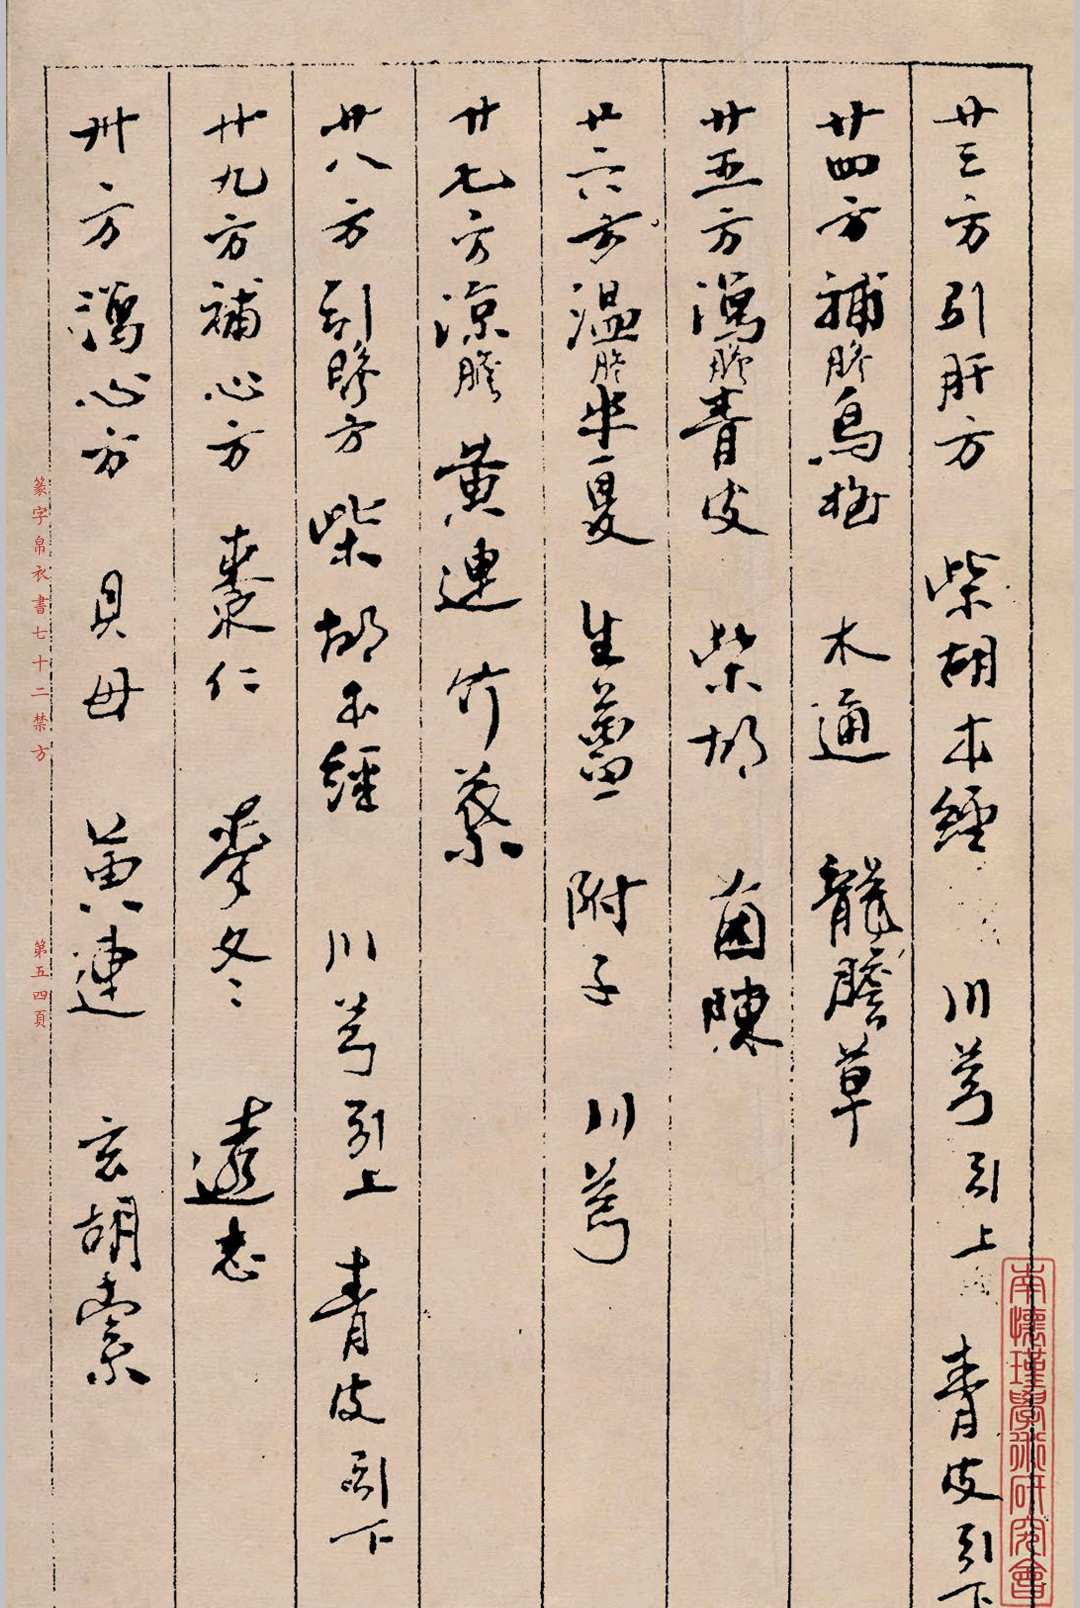 廿三方引肝方 柴胡本經 川芎引上 青皮引下
廿四方補胆烏梅 木通 龍膽草
廿五方瀉胆青皮 柴胡 茵陳
廿六方溫胆半夏 生薑 附子 川芎
廿七方涼膽 黃連 竹葉
廿八方引胆方 柴胡本經 川芎引上 青皮引下
廿九方補心方 棗仁 麥冬 遠志
卅方瀉心方 貝母 黃連 玄胡索
篆字帛衣書七十二禁方 第五四頁
南懷瑾學術研究會